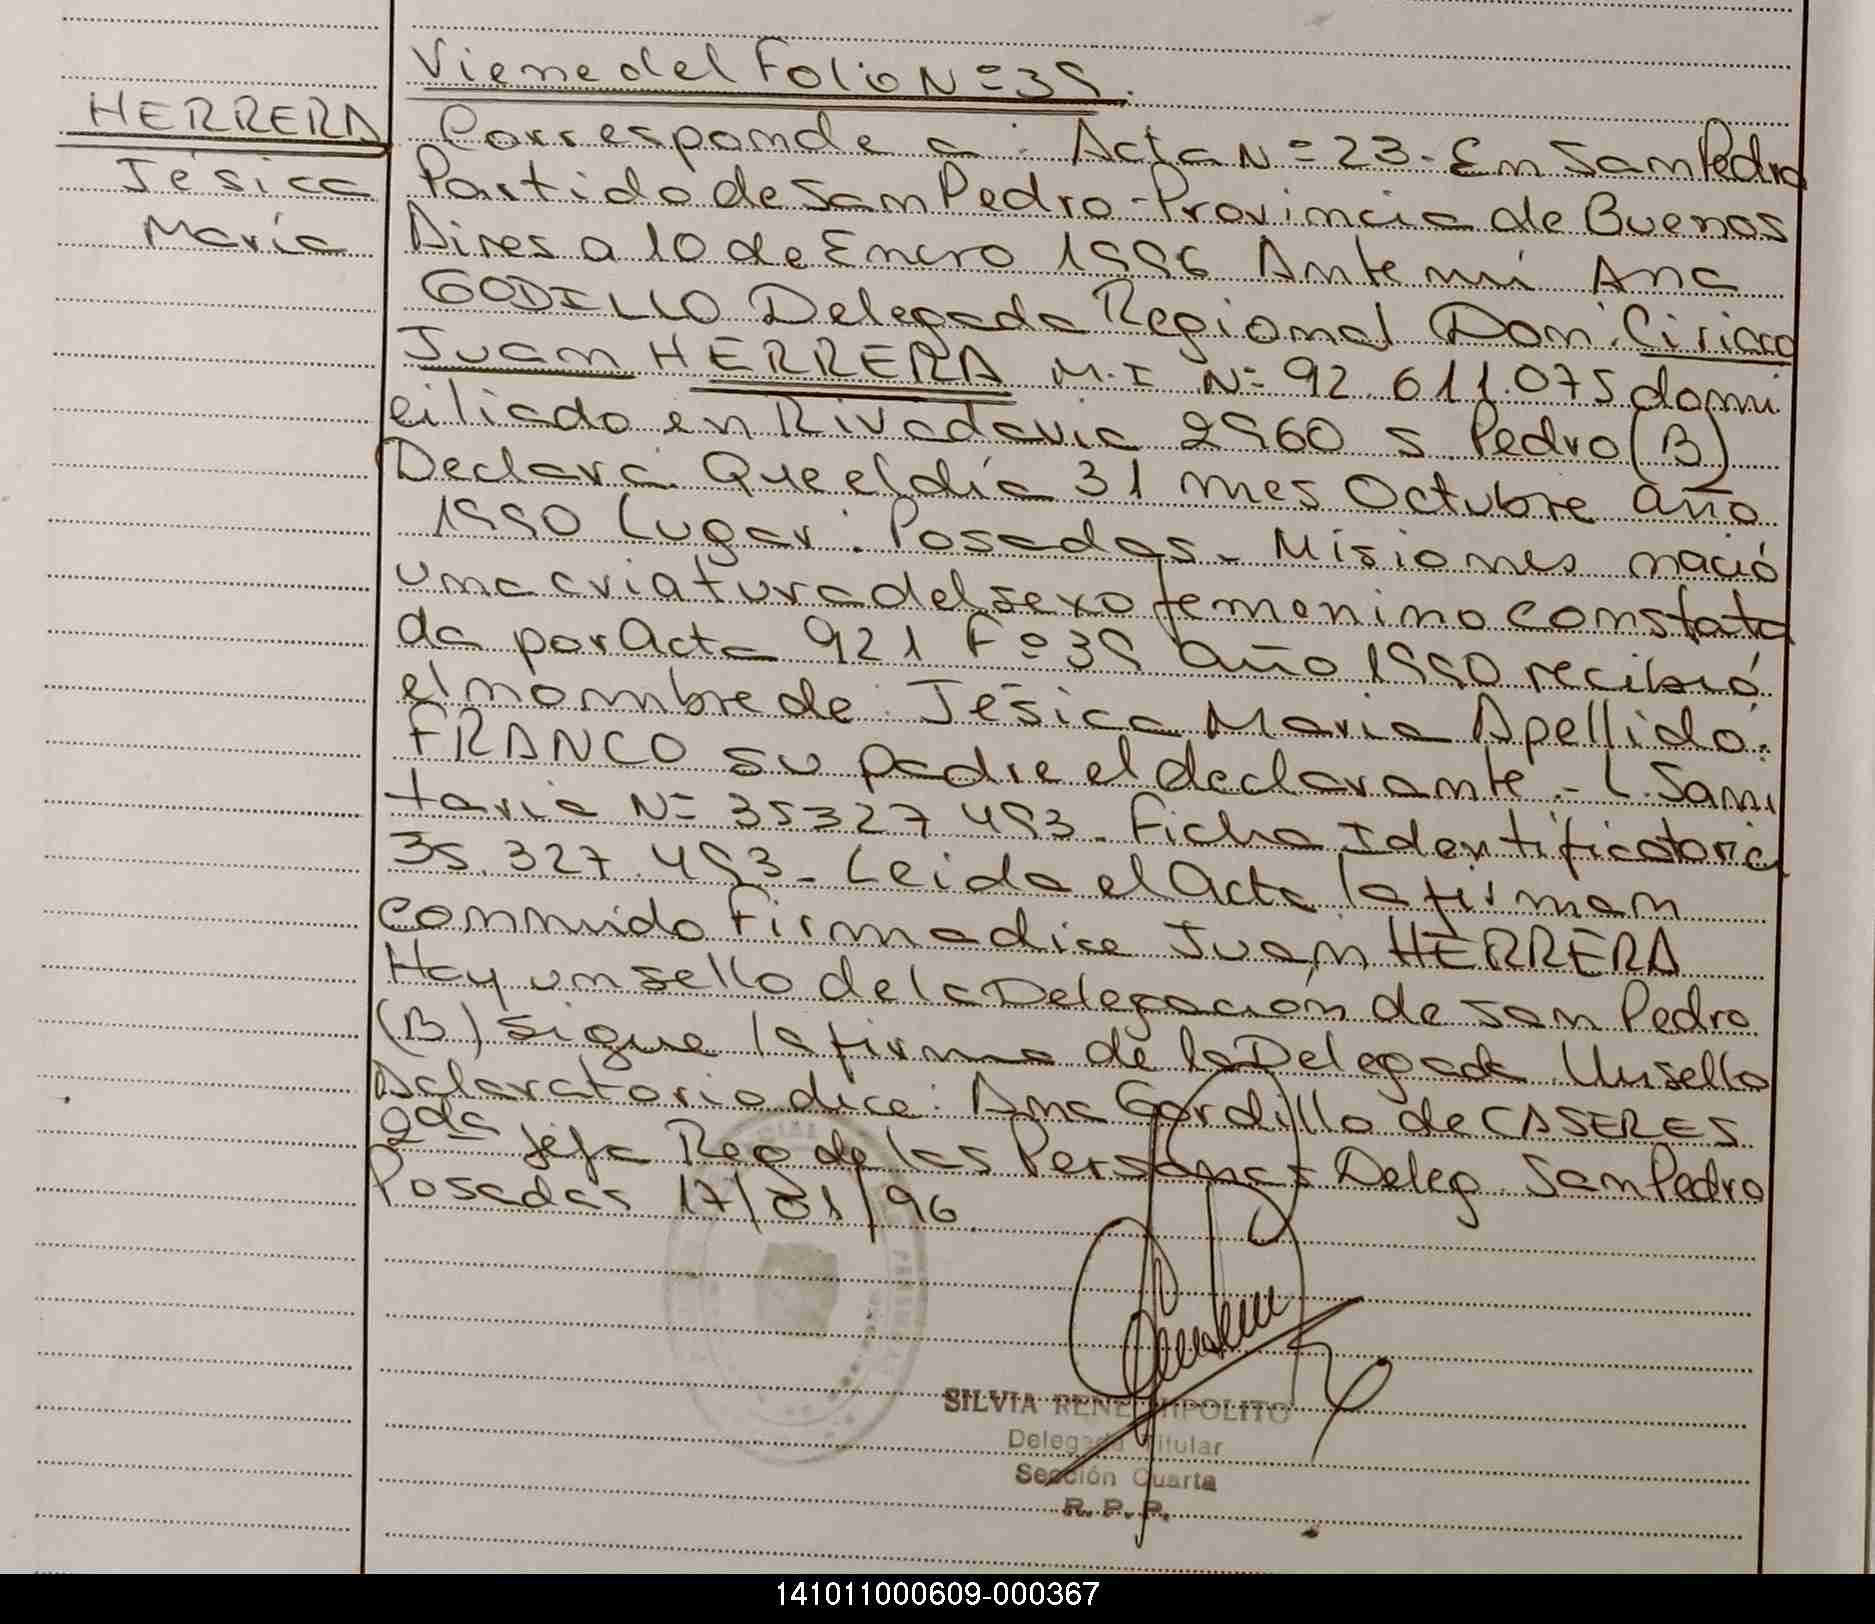 Viene del Folio Nº 39.
HERRERA
Jésica
María
Corresponde a: Acta Nº 23. En San Pedro
Partido de San Pedro - Provincia de Buenos
Aires a 10 de Enero 1996 Ante mí Ana
GODILLO Delegada Regional Don: Ciriaco
Juan HERRERA M.I Nº 92.611.075 domi
ciliado en Rivadavia 2960 S. Pedro (B)
Declara: Que el día 31 mes Octubre año
1990 Lugar: Posadas - Misiones nació
una criatura del sexo femenino constata
da por acta 921 Fº 39 año 1990 recibió
el nombre de: Jésica Maria Apellido:
FRANCO su padre el declarante. - L. Sani
taria Nº 35327493. Ficha Identificatoria
35.327.493 - Leida el acta la firman
conmido Firma dice Juan HERRERA
Hay un sello de la Delegación de San Pedro
(B) sigue la firma de la Delegada Un sello
Aclaratorio dice: Ana Gordillo de CASERES
2da Jefa Reg de las Personas Deleg. San Pedro
Posadas 17/01/96.
SILVIA RENE HIPOLITO
Delegada Titular
Sección Cuarta
R. P. P.
141011000609-000367